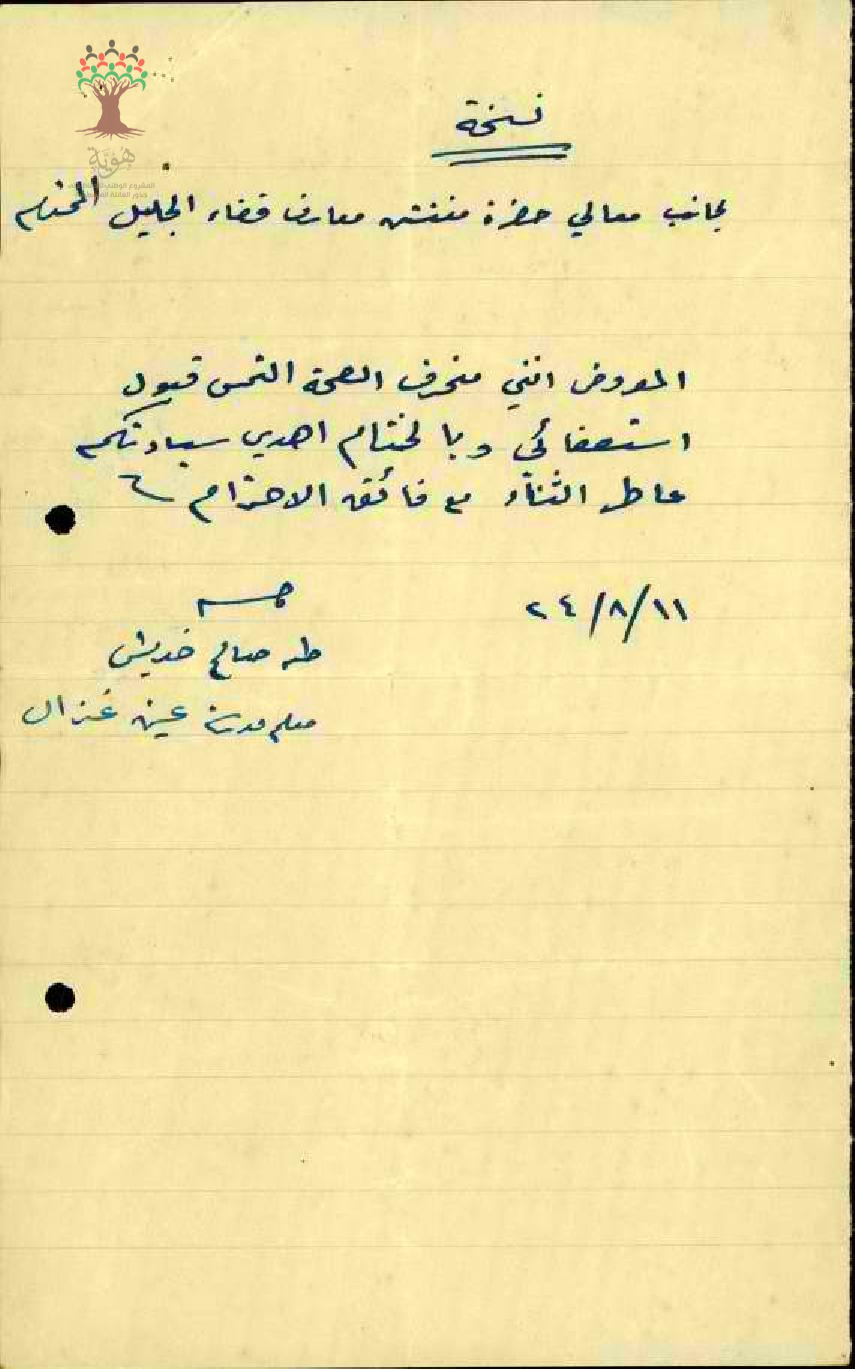 هوية
نسخة
لجانب معالي حضرة مفتش معارف قضاء الجليل المحترم
المعروض انني منحرف الصحة التمس قبول
استعفائي وبالختام اهدي سيادتكم
عاطر الثناء مع فائق الاحترام
٢٤/٨/١١
طه صالح خديش
معلم مدرسة عين غزال